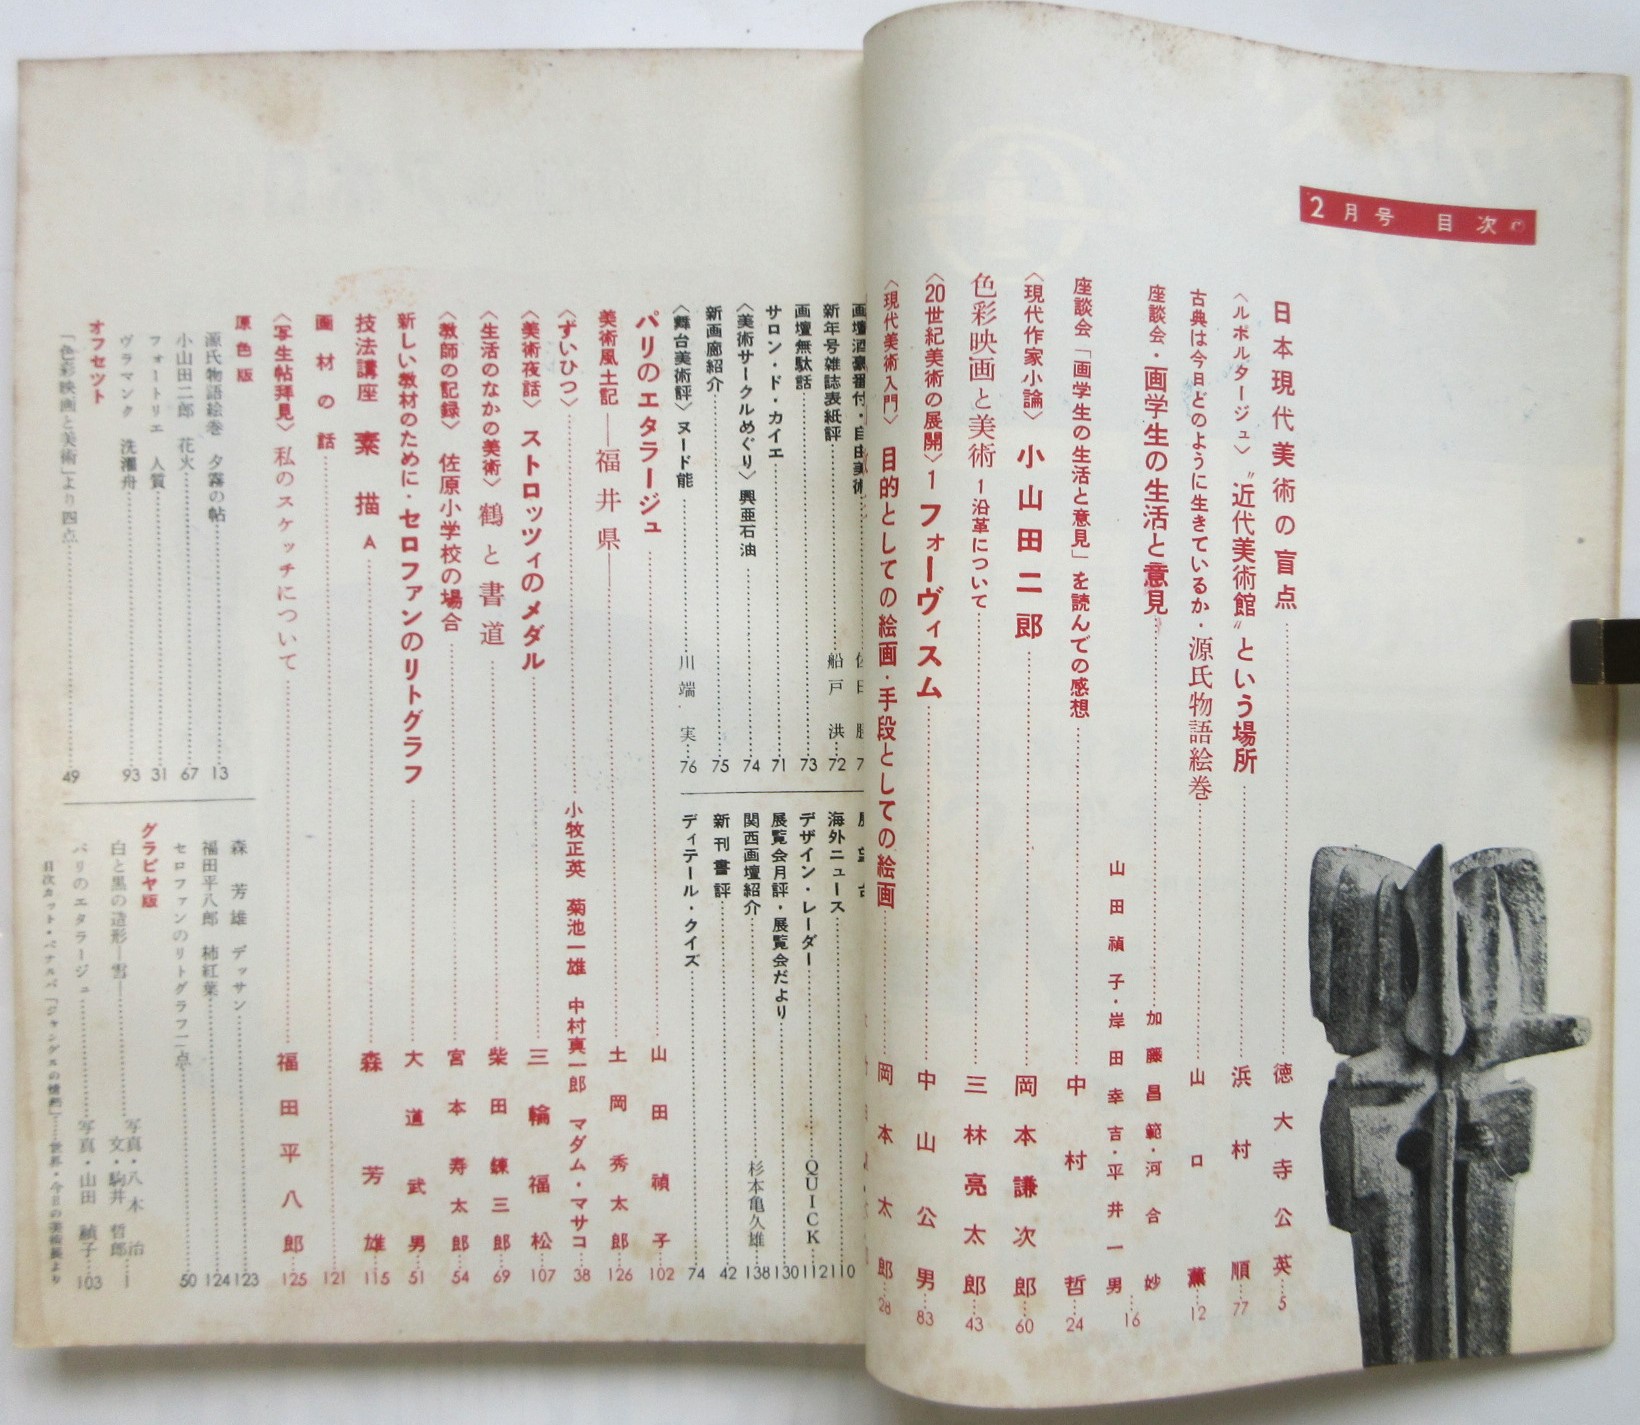 2月号 目次
日本現代美術の盲点 徳大寺公英 5
〈ルポルタージュ〉“近代美術館”という場所 浜村順 77
古典は今日どのように生きているか・源氏物語絵巻 山口薫 12
座談会・画学生の生活と意見 加藤昌範・河合妙
山田禎子・岸田幸吉・平井一男 16
座談会「画学生の生活と意見」を読んでの感想 中村哲 24
〈現代作家小論〉小山田二郎 岡本謙次郎 60
色彩映画と美術 1沿革について 三林亮太郎 43
〈20世紀美術の展開〉1 フォーヴィスム 中山公男 83
〈現代美術入門〉目的としての絵画・手段としての絵画 岡本太郎 28
画壇酒豪番付・自由美術
新年号雑誌表紙評 船戸洪 72
画壇無駄話 73
サロン・ド・カイエ 71
〈美術サークルめぐり〉興亜石油 74
新画廊紹介 75
〈舞台美術評〉ヌード能 川端実 76
海外ニュース 110
デザイン・レーダー QUICK 112
展覧会月評・展覧会だより 130
関西画壇紹介 杉本亀久雄 138
新刊書評 42
ディテール・クイズ 74
パリのエタラージュ 山田禎子 102
美術風土記―福井県― 土岡秀太郎 126
〈ずいひつ〉 小牧正英 菊池一雄 中村真一郎 マダム・マサコ 38
〈美術夜話〉ストロッツィのメダル 三輪福松 107
〈生活のなかの美術〉鶴と書道 柴田錬三郎 69
〈教師の記録〉佐原小学校の場合 宮本寿太郎 54
新しい教材のために・セロファンのリトグラフ 大道武男 51
技法講座 素描 A 森芳雄 115
画材の話 121
〈写生帖拝見〉私のスケッチについて 福田平八郎 125
原色版
源氏物語絵巻 夕霧の帖 13
小山田二郎 花火 67
フォートリエ 人質 31
ヴラマンク 洗濯舟 93
オフセット
「色彩映画と美術」より四点 49
森芳雄 デッサン 123
福田平八郎 柿紅葉 124
セロファンのリトグラフ二点 50
グラビヤ版
白と黒の造形―雪― 写真・八木治
文・駒井哲郎 1
パリのエタラージュ 写真・山田禎子 103
目次カット・ペナルバ「ジャングルの」世界・今日の美術展より